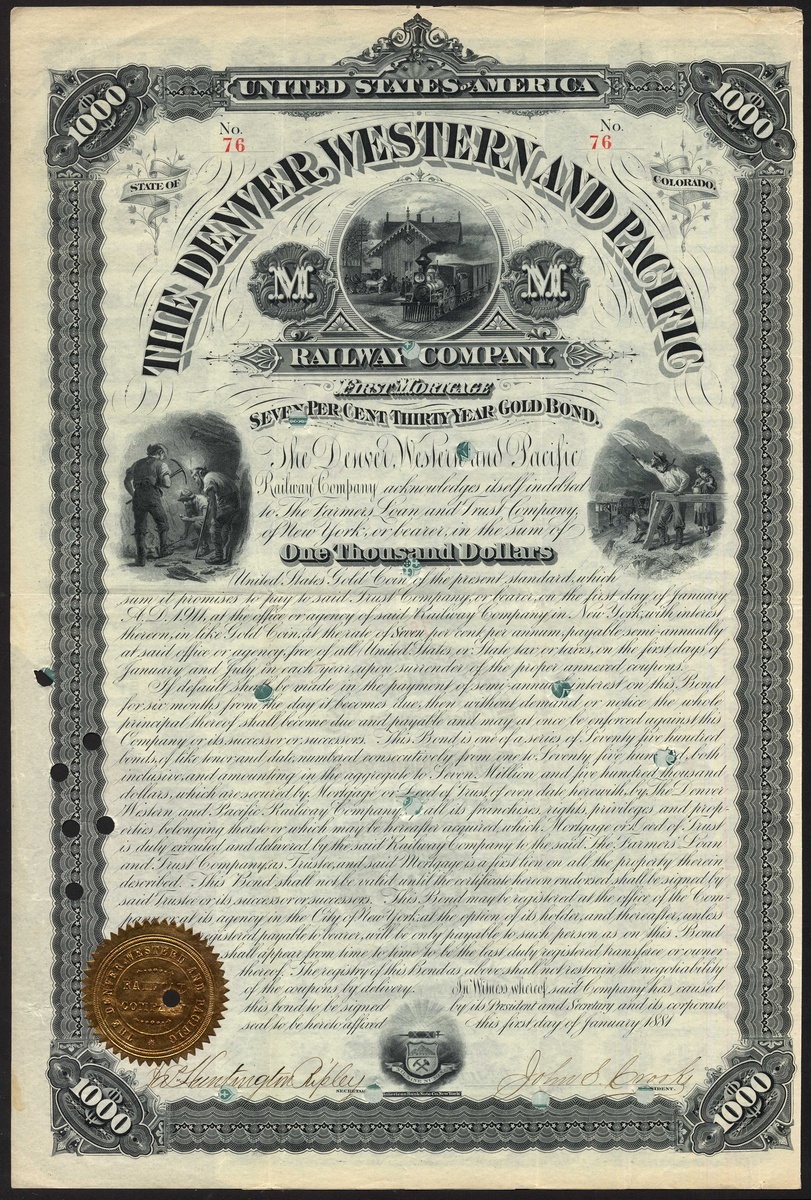 UNITED STATES OF AMERICA
1000
1000
No.
76
No.
76
STATE OF
COLORADO.
THE DENVER, WESTERN AND PACIFIC
M
M
RAILWAY COMPANY
FIRST MORTGAGE
SEVEN PER CENT THIRTY YEAR GOLD BOND.
The Denver, Western and Pacific
Railway Company acknowledges itself indebted
to The Farmers' Loan and Trust Company,
of New York, or bearer, in the sum of
One Thousand Dollars
United States Gold Coin, of the present standard, which
sum it promises to pay to said Trust Company, or bearer, on the first day of January
A.D. 1911, at the office or agency of said Railway Company in New York, with interest
thereon, in like Gold Coin, at the rate of Seven per cent per annum, payable semi-annually
at said office or agency, free of all United States or State tax or taxes, on the first days of
January and July in each year, upon surrender of the proper annexed coupons.
If default shall be made in the payment of semi-annual interest on this Bond
for six months from the day it becomes due, then without demand or notice the whole
principal thereof shall become due and payable and may at once be enforced against this
Company or its successor or successors. This Bond is one of a series of Seventy five hundred
bonds, of like tenor and date, numbered consecutively from one to Seventy five hundred, both
inclusive, and amounting in the aggregate to Seven Million and five hundred thousand
dollars, which are secured by Mortgage or Deed of Trust, of even date herewith, by The Denver
Western and Pacific Railway Company of all its franchises, rights, privileges and prop-
erties belonging thereto or which may be hereafter acquired, which Mortgage or Deed of Trust
is duly executed and delivered by the said Railway Company to the said The Farmers' Loan
and Trust Company, as Trustee, and said Mortgage is a first lien on all the property therein
described. This Bond shall not be valid until the certificate hereon endorsed shall be signed by
said Trustee or its successor or successors. This Bond may be registered at the office of the Com-
pany or at its agency in the City of New York, at the option of its holder, and thereafter, unless
registered payable to bearer, will be only payable to such person as on this Bond
shall appear from time to time to be the last duly registered transferee or owner
thereof. The registry of this Bond as above shall not restrain the negotiability
of the coupons by delivery. In Witness whereof, said Company has caused
this bond to be signed by its President and Secretary and its corporate
seal to be hereto affixed this first day of January 1881
THE DENVER, WESTERN AND PACIFIC
RAILWAY
COMPANY
Huntington Ripley
SECRETARY
John S. Crosby
PRESIDENT.
American Bank Note Co. New York
1000
1000